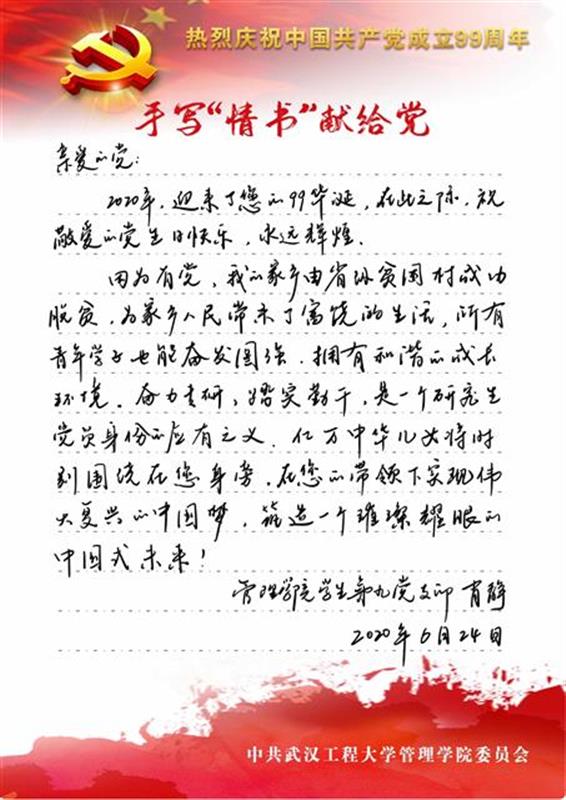 热烈庆祝中国共产党成立99周年
手写“情书”献给党
亲爱的党：
2020年，迎来了您的99华诞，在此之际，祝
敬爱的党生日快乐，永远辉煌．
因为有党，我的家乡由省级贫困村成功
脱贫，为家乡人民带来了富饶的生活，所有
青年学子也能奋发图强，拥有和谐的成长
环境．奋力专研，踏实勤干，是一个研究生
党员身份的应有之义．亿万中华儿女将时
刻围绕在您身旁，在您的带领下实现伟
大复兴的中国梦，筑造一个璀璨耀眼的
中国式未来！
管理学院学生第九党支部 肖
2020年6月24日
中共武汉工程大学管理学院委员会